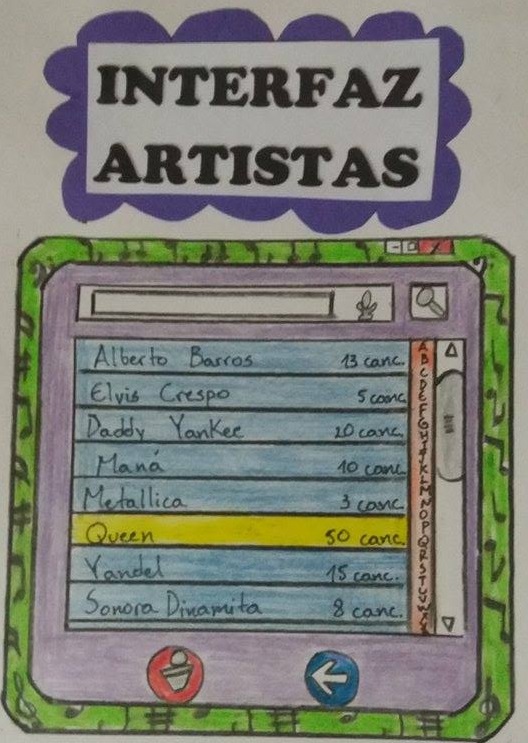 INTERFAZ
ARTISTAS
Alberto Barros 13 canc.
Elvis Crespo 5 canc
Daddy Yankee 20 canc.
Maná 10 canc
Metallica 3 canc
Queen 50 canc.
Yandel 15 canc.
Sonora Dinamita 8 canc.
A
B
C
D
E
F
G
H
I
J
K
L
M
N
O
P
Q
R
S
T
U
V
W
X